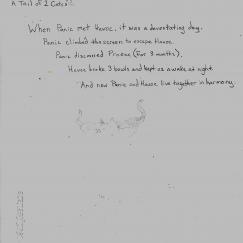 A Tail of 2 Cats
When Panic met Havoc, it was a devastating day.
Panic climbed the screen to escape Havoc.
Panic disowned Princess (For 3 months).
Havoc broke 3 bowls and kept us awake at night
And now Panic and Havoc live together in harmony.